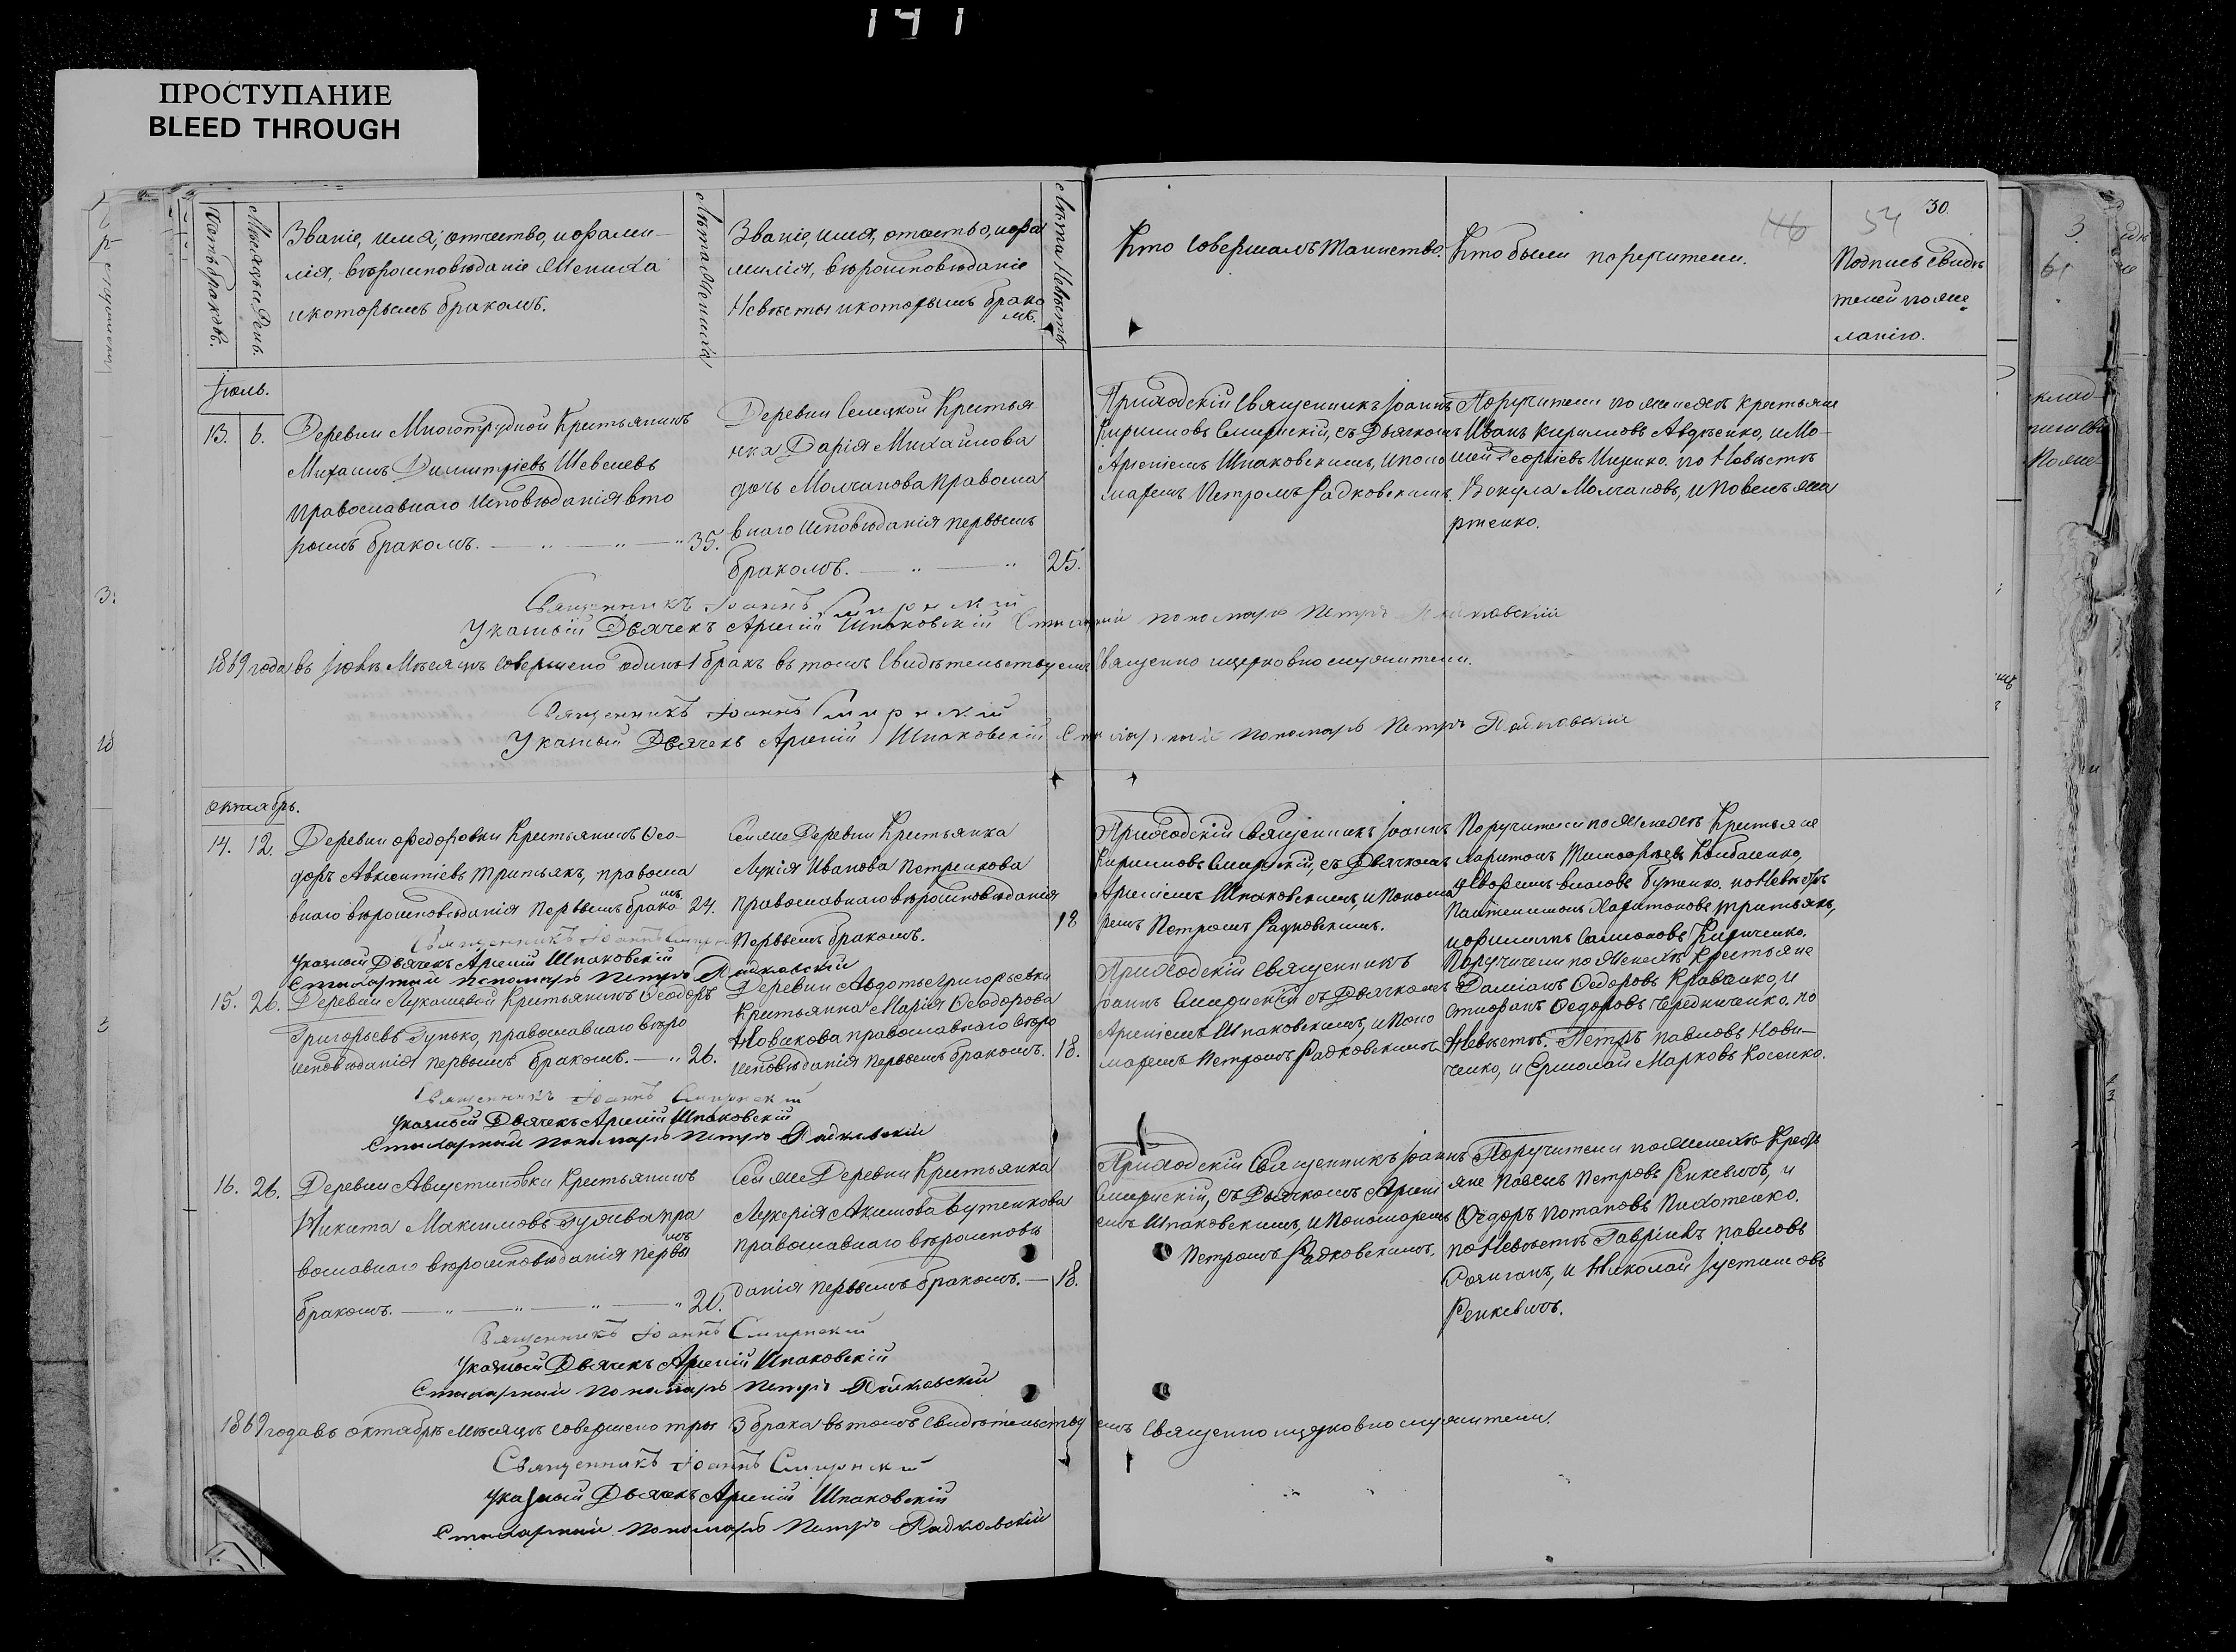 141
ПРОСТУПАНИЕ
BLEED THROUGH
146
54
30.
Мѣсяцъ и День.
Званіе, имя, отчество, и фами-
лія, вѣроисповѣданіе Жениха
и которымъ бракомъ.
Лѣта Жениха
Званіе, имя, отчество, и фа
милія, вѣроисповѣданіе
Невѣсты и которымъ брако
мъ.
Лѣта Невѣсты
Кто совершалъ таинство.
Кто были поручители.
Подпись свидѣ
телей по же
ланію.
Іюль.
13. 6.
Деревни Многотрудной Крестьянинъ
Михаилъ Димитріевъ Шевелевъ
православнаго исповѣданія вто
рымъ бракомъ. 35.
Деревни Селецкой Крестья
нка Дарія Михайлова
дочь Молчанова православ
внаго исповѣданія первымъ
бракомъ. 25.
Приходскій Священникъ Іоаннъ
Кириловъ Смирнскій, съ Дьячкомъ
Арсеніемъ Шпаковскимъ, и поно
маремъ Петромъ Радковскимъ.
Поручители по женихѣ крестьяне
Иванъ Кириловъ Авдѣенко, и Мо-
исей Георгіевъ Ищенко. по Невѣстѣ
Вакула Молчановъ, и Павелъ Ма
ртенко.
Священникъ Іоаннъ Смирнскій
Указный Дьячекъ Арсеній Шпаковскій Стихарный пономарь Петръ Радковскій
1869 года въ Іюлѣ Мѣсяцѣ совершено одинъ 1 бракъ въ томъ Свидѣтельствуемъ Священно и церковно служители.
Священникъ Іоаннъ Смирнскій
Указный Дьячекъ Арсеній Шпаковскій Стихарный пономарь Петръ Радковскій
Октябрь.
14. 12.
Деревни Федоровки Крестьянинъ Ѳео-
доръ Авксентіевъ Третьякъ, правосла
внаго вѣроисповѣданія первымъ брако
мъ 24.
Сей же Деревни Крестьянка
Лукія Иванова Петренкова
православнаго вѣроисповѣданія
Первымъ бракомъ. 18
Приходскій Священникъ Іоаннъ
Кириловъ Смирнскій, съ Дьячкомъ
Арсеніемъ Шпаковскимъ, и Понома
ремъ Петромъ Радковскимъ.
Поручители по Женихѣ Крестьяне
Харитонъ Тимофѣевъ Комбаленко,
Бутенко. по Невѣстѣ
Пантелимонъ Харитоновъ Третьякъ,
Кириченко.
Священникъ Іоаннъ Смирн
Указный Дьячекъ Арсеній Шпаковскій
Стихарный пономарь Петръ Радковскій
15. 26.
Деревни Лукашевой Крестьянинъ Ѳеодоръ
Григорьевъ Гунько, православнаго вѣро
исповѣданія первымъ бракомъ. 26.
Деревни Авдоть Григорьевки
Крестьянка Марія Ѳеодорова
Новикова православнаго вѣро
исповѣданія первымъ бракомъ. 18.
Приходскій Священникъ
Іоаннъ Смирнскій съ Дьячкомъ
Арсеніемъ Шпаковскимъ, и Поно
маремъ Петромъ Радковскимъ
Поручители по Женихѣ Крестьяне
Даміанъ Ѳедоровъ Кравченко, и
Стефанъ Ѳедоровъ Чередниченко. по
Невѣстѣ. Петръ Павловъ Нови-
ченко, и Ермолай Марковъ Косенко.
Священникъ Іоаннъ Смирнскій
Указный Дьячекъ Арсеній Шпаковскій
Стихарный пономарь Петръ Радковскій
16. 26.
Деревни Августиновки Крестьянинъ
Никита Максимовъ Гулява пра
вославнаго вѣроисповѣданія первы
мъ
бракомъ. 20.
Сей же Деревни Крестьянка
Лукерія Акимова Бутенкова
православнаго вѣроисповѣ
данія первымъ бракомъ. 18.
Приходскій Священникъ Іоаннъ
Смирнскій, съ Дьячкомъ Арсені
емъ Шпаковскимъ, и Пономаремъ
Петромъ Радковскимъ.
Поручители по Женихѣ Кресть
яне Павелъ Петровъ Ренкевичъ, и
Ѳедоръ Потаповъ Пихотенко.
по Невѣстѣ Гавріилъ Павловъ
и Николай Іустиновъ
Ренкевичъ.
Священникъ Іоаннъ Смирнскій
Указный Дьячекъ Арсеній Шпаковскій
Стихарный пономарь Петръ Радковскій
1869 года въ октябрѣ мѣсяцѣ совершено три 3 брака въ томъ Свидѣтельствуемъ Священно и церковно служители.
Священникъ Іоаннъ Смирнскій
Указный Дьячекъ Арсеній Шпаковскій
Стихарный пономарь Петръ Радковскій